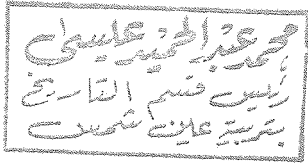 محمد عبد الحميد عيسى
رئيس قسم التاريخ
بتربية عين شمس